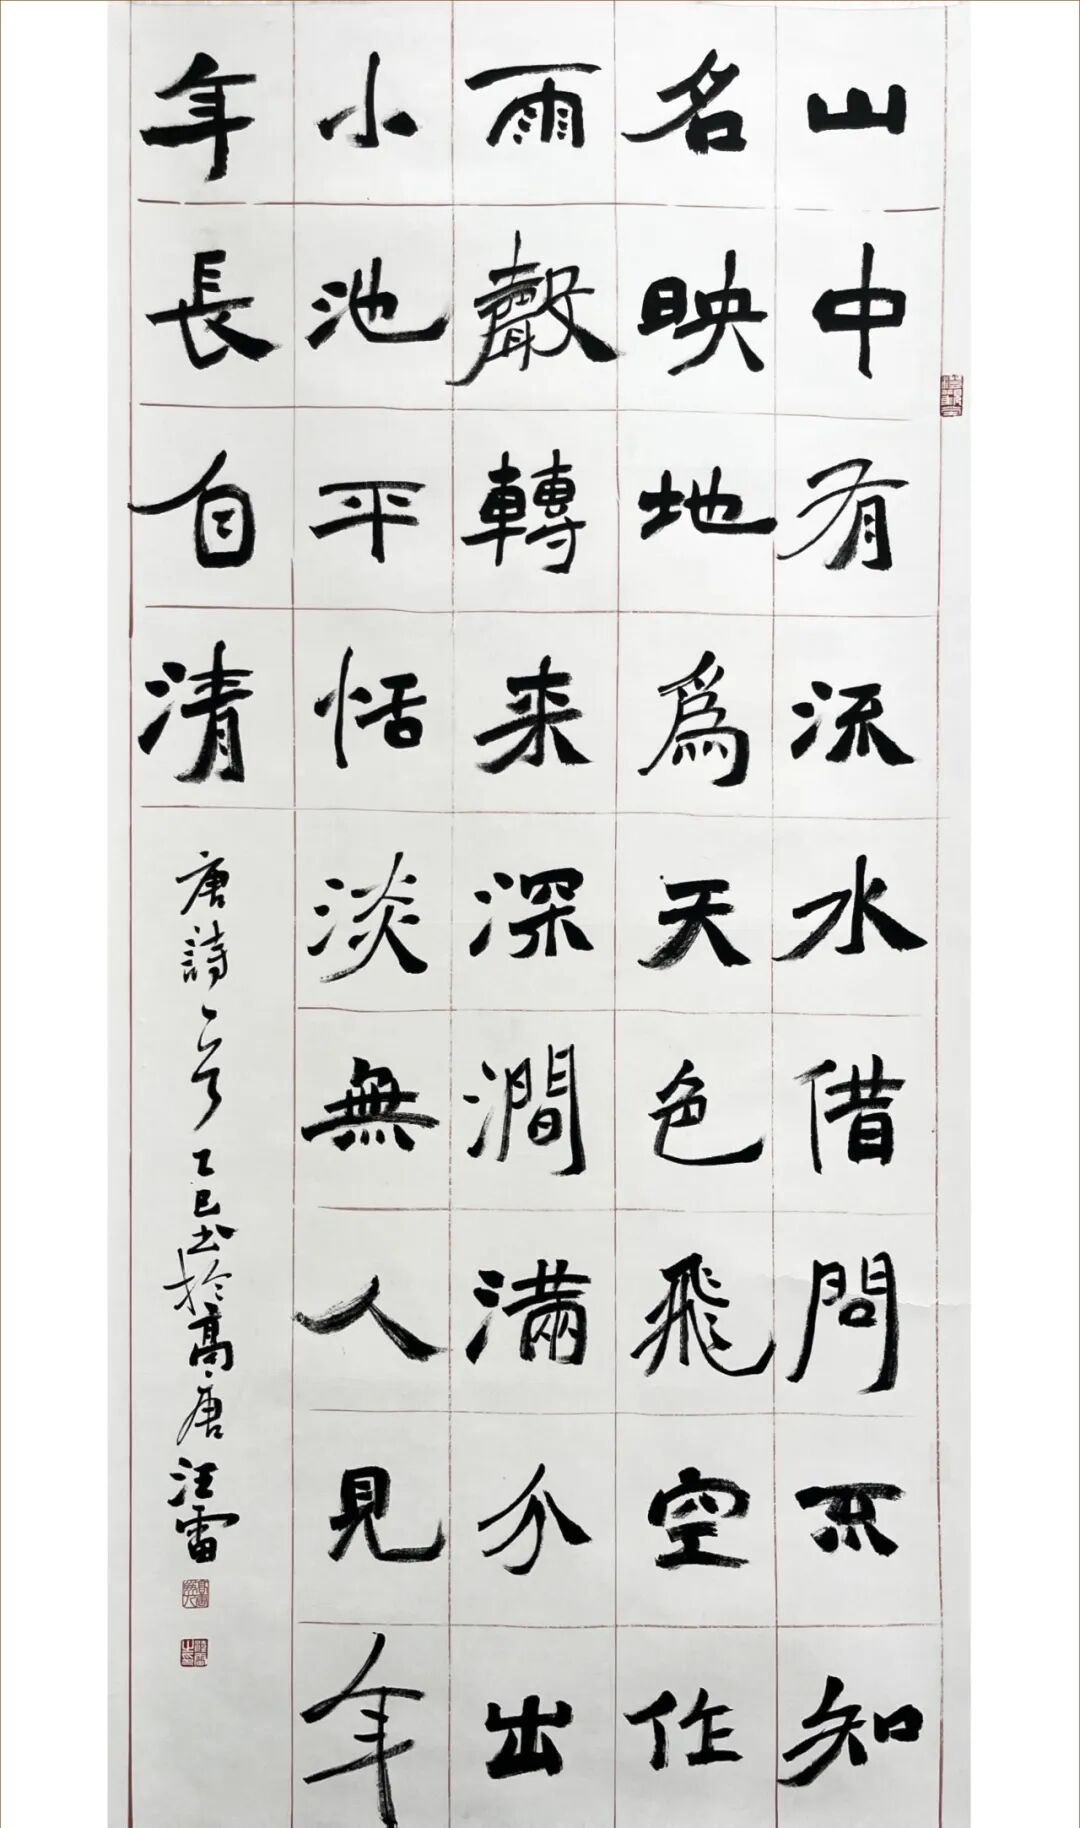 山中有流水借問不知
名映地為天色飛空作
雨聲轉来深澗滿分出
小池平恬淡無人見年
年長自清
唐詩一首乙巳书於高唐汪雷